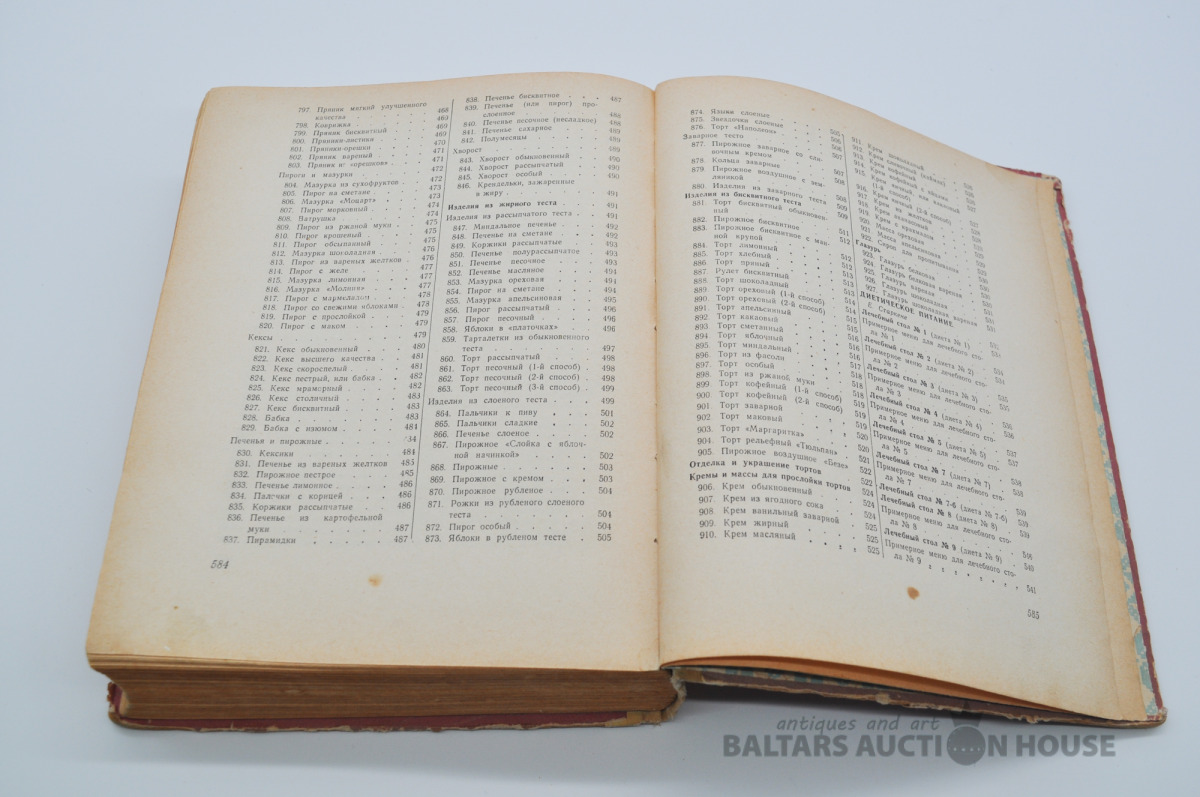 797. Пряник мягкий улучшенного
качества . . . . 468
798. Коврижка . . . . 469
799. Пряник бисквитный . . . 469
800. Пряники-листики . . . 470
801. Пряники-орешки . . . 471
802. Пряник вареный . . . 471
803. Пряник и «орешков» . . 471
Пироги и мазурки . . . 472
804. Мазурка из сухофруктов . . 472
805. Пирог на сметане . . . 473
806. Мазурка «Моцарт» . . . 473
807. Пирог морковный . . . 474
808. Ватрушка . . . . 474
809. Пирог из ржаной муки . . 475
810. Пирог крошеный . . . 475
811. Пирог обсыпанный . . . 475
812. Мазурка шоколадная . . 476
813. Пирог из вареных желтков . 476
814. Пирог с желе . . . . 477
815. Мазурка лимонная . . . 477
816. Мазурка . . . 477
817. Пирог с мармеладом . . . 478
818. Пирог со свежими яблоками . 478
819. Пирог с прослойкой . . . 479
820. Пирог с маком . . . . 479
Кексы . . . . 479
821. Кекс обыкновенный . . . 480
822. Кекс высшего качества . . 481
823. Кекс скороспелый . . . 481
824. Кекс пестрый, или бабка . . 482
825. Кекс мраморный . . . . 482
826. Кекс столичный . . . . 483
827. Кекс бисквитный . . . . 483
828. Бабка . . . . 483
829. Бабка с изюмом . . . . 484
Печенья и пирожные . . . .
830. Кексики . . . . 484
831. Печенье из вареных желтков 485
832. Пирожное пестрое . . . 485
833. Печенье лимонное . . . . 486
834. Палочки с корицей . . . 486
835. Коржики рассыпчатые . . 486
836. Печенье из картофельной
муки . . . . 487
837. Пирамидки . . . . 487
584
838. Печенье бисквитное . . . 487
839. Печенье (или пирог) про-
слоенное . . . . 488
840. Печенье песочное (несладкое) 488
841. Печенье сахарное . . . 489
842. Полумесяцы . . . . 489
Хворост . . . . 489
843. Хворост обыкновенный . . 490
844. Хворост рассыпчатый . . 490
845. Хворост особый . . . . 490
846. Крендельки, зажаренные
в жиру . . . . 491
Изделия из жирного теста . . . 491
Изделия из рассыпчатого теста . . 491
847. Миндальное печенье . . . 492
848. Печенье на сметане . . . 492
849. Коржики рассыпчатые . . 493
850. Печенье полурассыпчатое . 493
851. Печенье песочное . . . 493
852. Печенье масляное . . . 494
853. Мазурка ореховая . . . 494
854. Пирог на сметане . . . 494
855. Мазурка апельсиновая . . 495
856. Пирог рассыпчатый . . . 496
857. Пирог песочный . . . . 496
858. Яблоки в «платочках» . . 496
859. Тарталетки из обыкновенного
теста . . . . 497
860. Торт рассыпчатый . . . 498
861. Торт песочный (1-й способ) . 498
862. Торт песочный (2-й способ) . 498
863. Торт песочный (3-й способ) . 499
Изделия из слоеного теста . . . 499
864. Пальчики к пиву . . . . 501
865. Пальчики сладкие . . . 502
866. Печенье слоеное . . . . 502
867. Пирожное «Слойка с яблоч-
ной начинкой» . . . . 502
868. Пирожные . . . . 503
869. Пирожное с кремом . . . 503
870. Пирожное рубленое . . . 504
871. Рожки из рубленого слоеного
теста . . . . 504
872. Пирог особый . . . . 504
873. Яблоки в рубленом тесте . 505
874. Языки слоеные . . . .
875. Звездочки слоеные . . . 505
876. Торт «Наполеон» . . . 506
Заварное тесто . . . . 506
877. Пирожное заварное со сли-
вочным кремом . . . . 507
878. Кольца заварные . . . 507
879. Пирожное воздушное с зем-
ляникой . . . . 508
880. Изделия из заварного теста 508
Изделия из бисквитного теста . . 509
881. Торт бисквитный обыкновен-
ный . . . . 509
882. Пирожное бисквитное . . 511
883. Пирожное бисквитное с ман-
ной крупой . . . . 512
884. Торт лимонный . . . . 512
885. Торт хлебный . . . . 512
886. Торт пряный . . . . 512
887. Рулет бисквитный . . . 513
888. Торт шоколадный . . . 513
889. Торт ореховый (1-й способ) . 513
890. Торт ореховый (2-й способ) . 514
891. Торт апельсинный . . . 514
892. Торт какаовый . . . . 514
893. Торт сметанный . . . . 515
894. Торт яблочный . . . . 515
895. Торт миндальный . . . . 516
896. Торт из фасоли . . . . 516
897. Торт особый . . . . 517
898. Торт из ржаной муки . . 518
899. Торт кофейный (1-й способ) 518
900. Торт кофейный (2-й способ) 518
901. Торт заварной . . . . 519
902. Торт маковый . . . . 519
903. Торт «Маргаритка» . . . 519
904. Торт рельефный «Тюльпан» 520
905. Пирожное воздушное «Безе» 521
Отделка и украшение тортов . . 522
Кремы и массы для прослойки тортов 522
906. Крем обыкновенный . . . 524
907. Крем из ягодного сока . . 524
908. Крем ванильный заварной . 524
909. Крем жирный . . . . 525
910. Крем масляный . . . . 525
911. Крем шоколадный . . .
912. Крем сливочный . . .
913. Крем кофейный . . .
914. Крем кофейный с яйцом
915. Крем яичный, или ванильный
(1-й способ) . . .
916. Крем яичный (2-й способ)
917. Крем из желтков . . . 527
918. Крем ананасовый . . . 528
919. Крем с крахмалом . . . 528
920. Масса ореховая . . . 529
921. Масса апельсинная . . . 529
922. Сироп для пропитывания . 529
Глазурь . . . . 529
923. Глазурь белковая . . . 530
924. Глазурь белковая вареная 530
925. Глазурь вареная . . . 530
926. Глазурь шоколадная . . 531
927. Глазурь шоколадная вареная 531
ДИЕТИЧЕСКОЕ ПИТАНИЕ.
Лечебный стол № 1 (диета № 1) .
Примерное меню для лечебного сто-
ла № 1
Лечебный стол № 2 (диета № 2) . 534
Примерное меню для лечебного сто-
ла № 2 . . . . 535
Лечебный стол № 3 (диета № 3) . 535
Примерное меню для лечебного сто-
ла № 3 . . . . 536
Лечебный стол № 4 (диета № 4) . 536
Примерное меню для лечебного сто-
ла № 4
Лечебный стол № 5 (диета № 5) . 537
Примерное меню для лечебного сто-
ла № 5 . . . . 538
Лечебный стол № 7 (диета № 7) . 538
Примерное меню для лечебного сто-
ла № 7 . . . . 539
Лечебный стол № 7-б (диета № 7-б) . 539
Лечебный стол № 8 (диета № 8) . 539
Примерное меню для лечебного сто-
ла № 8 . . . . 540
Лечебный стол № 9 (диета № 9) . 540
Примерное меню для лечебного сто-
ла № 9 . . . . 541
585
antiques and art
BALTARS AUCTION HOUSE